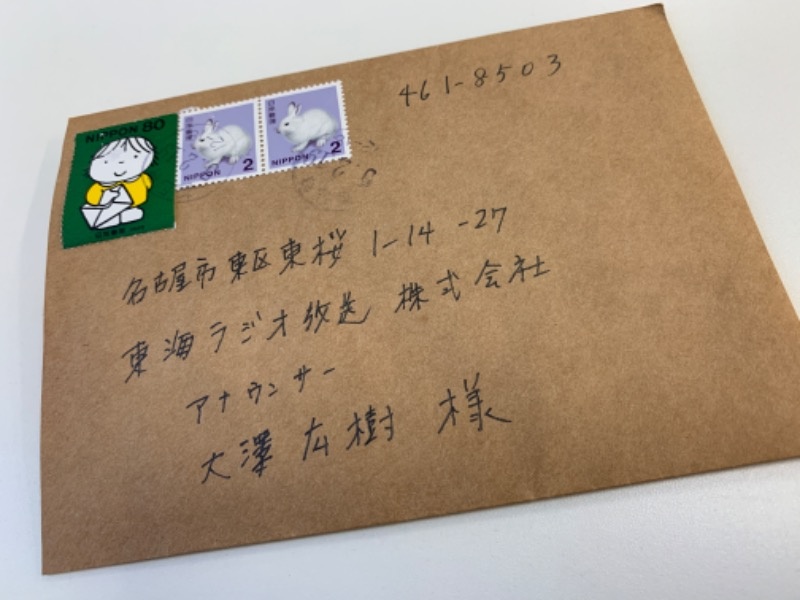 461-8503
NIPPON 80
日本郵便
NIPPON 2
日本郵便
NIPPON 2
名古屋市東区東桜 1-14-27
東海ラジオ放送 株式会社
アナウンサー
大澤 広樹 様